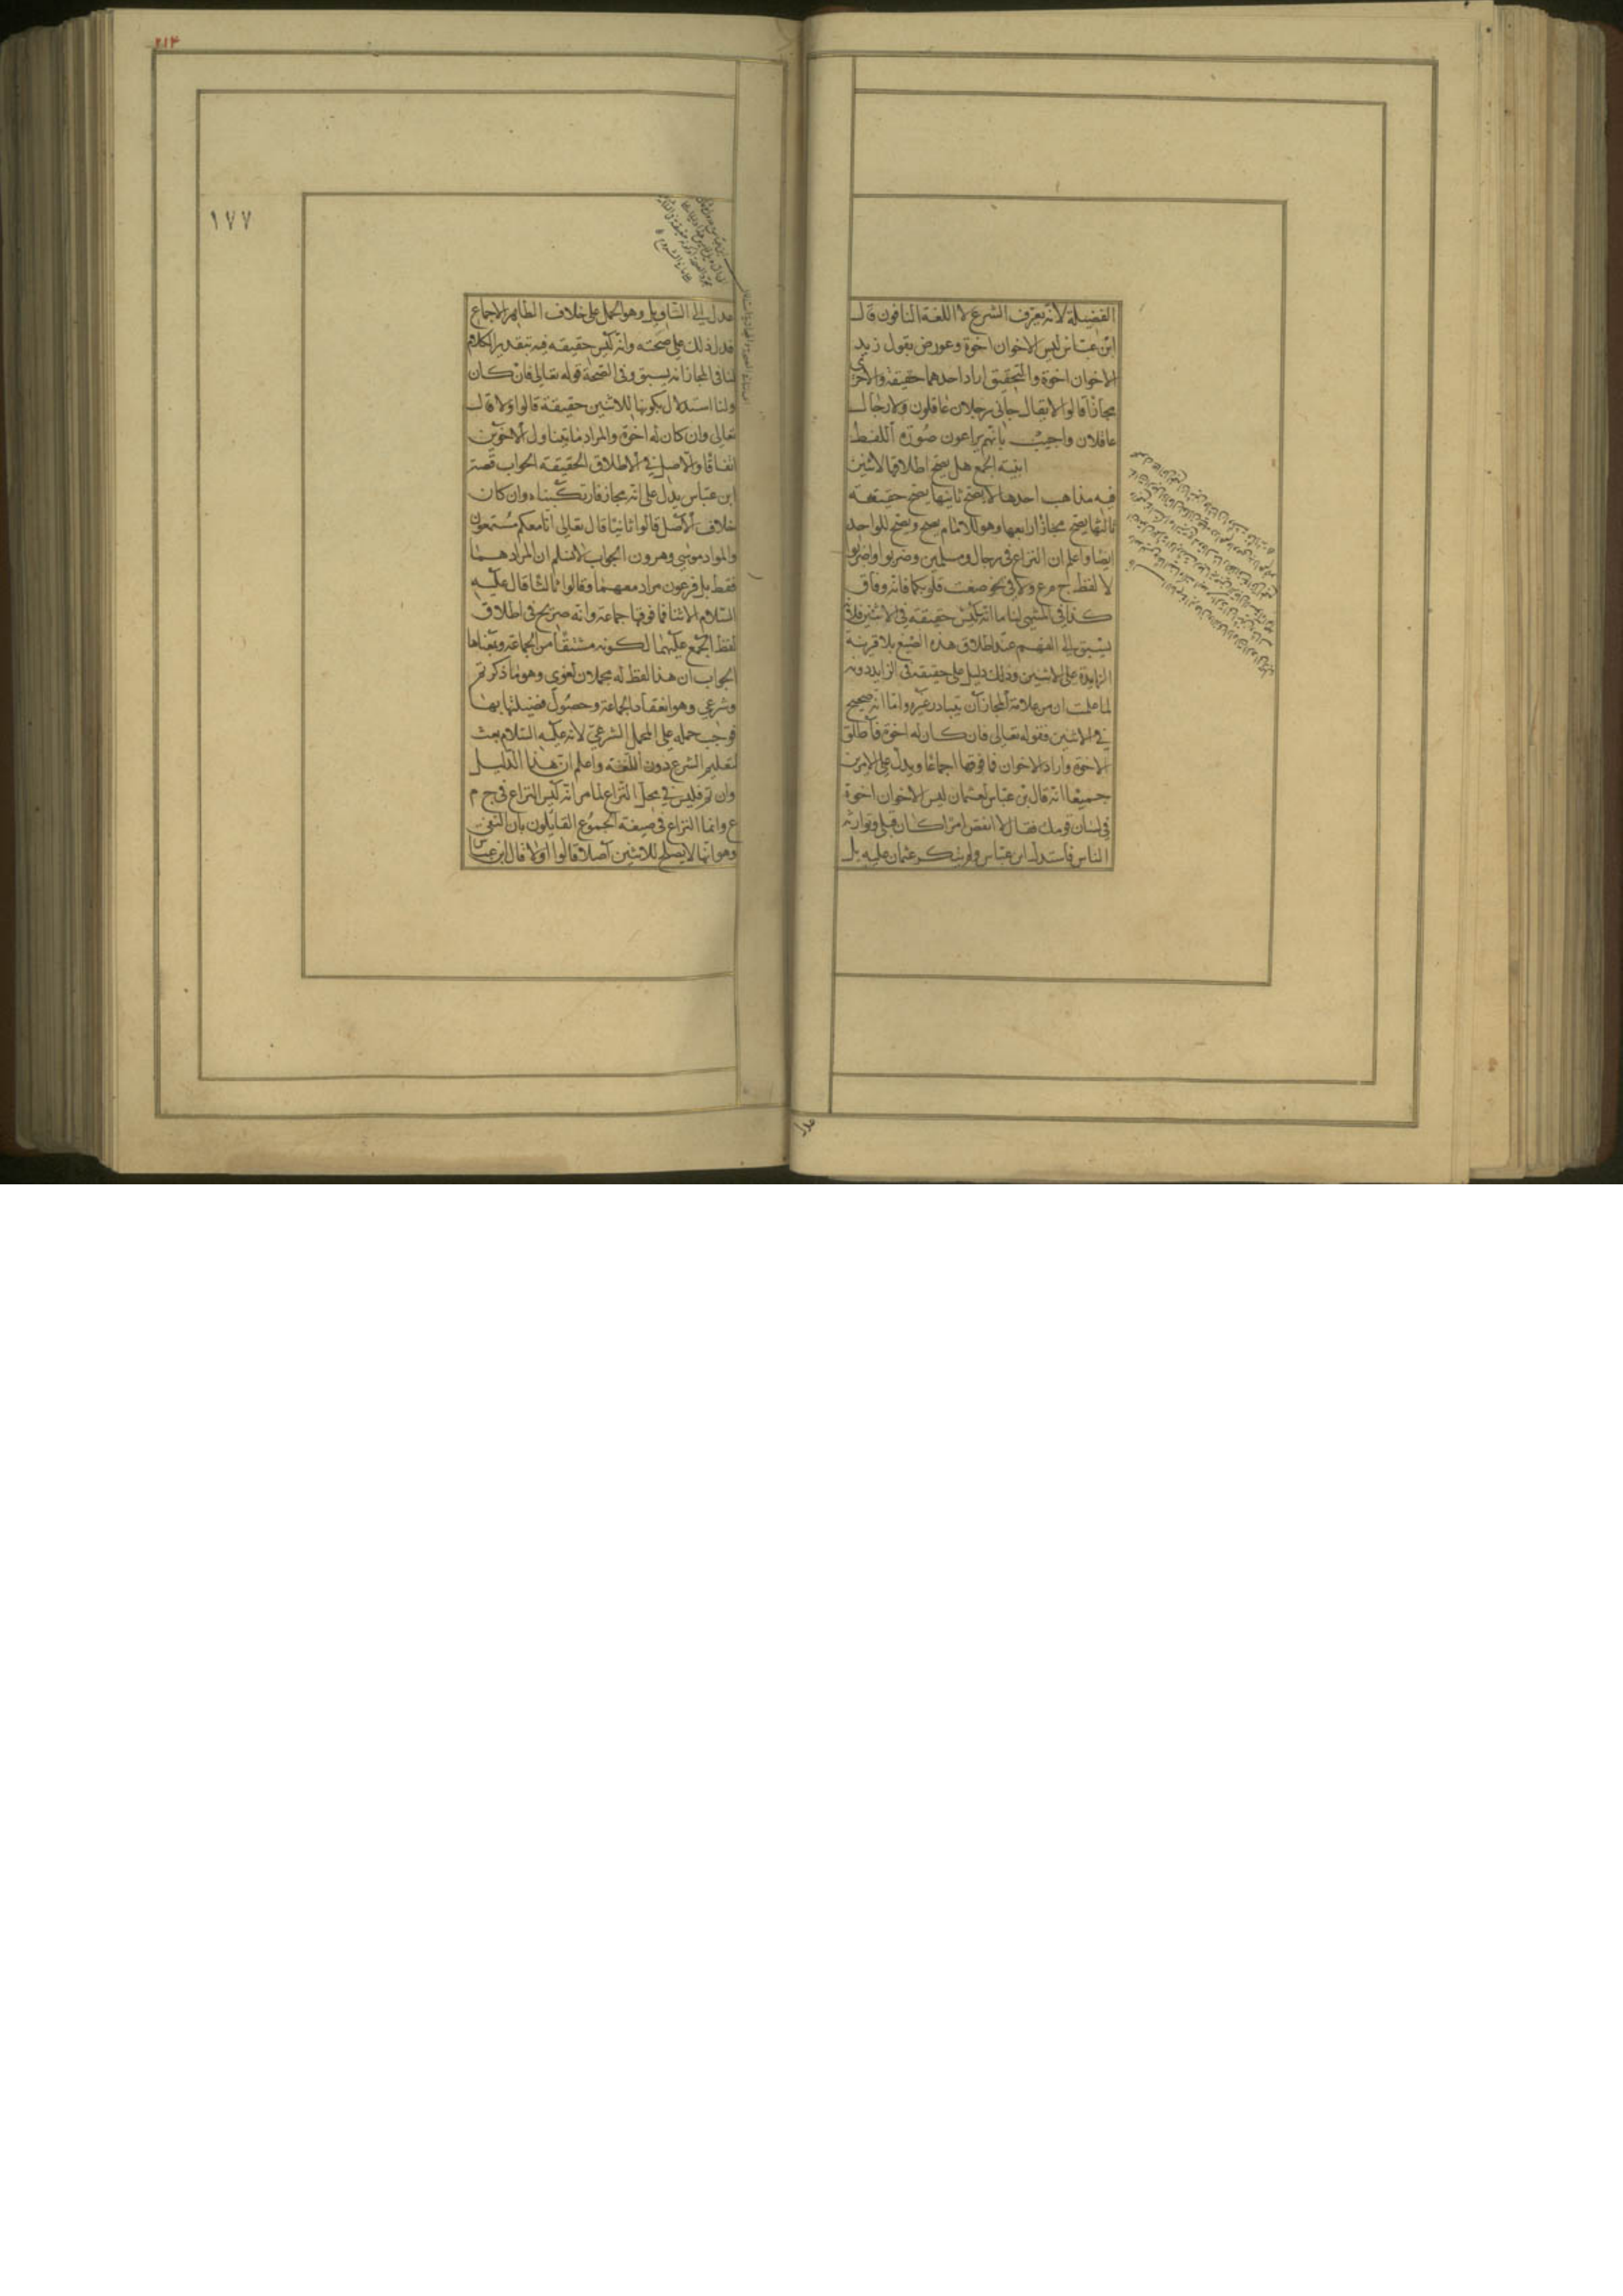 الفضيلة لانه يعرف الشرع لا اللغة النافون قال
ابن عباس ليس الاخوان اخوة وعورض بقول زيد
الاخوان اخوة والتحقيق اراد احدهما حقيقة والاخر
مجازا قالوا لا يقال جاني رجلان عاقلون ولا رجال
عاقلان واجيب بانهم يراعون صورة اللفظ
ابنية الجمع هل يصح اطلاقها لاثنين
فيه مذاهب احدها لا يصح ثانيها يصح حقيقة
ثالثها يصح مجازا رابعها وهو للامام يصح ويصح للواحد
ايضا واعلم ان النزاع في رجال ومسلمين وضربوا واضربوا
لا لفظ ج م ع ولا في نحو صغت قلوبكما فانه وفاق
كذا في المنتهى لنا ما انه ليس حقيقة في الاثنين فلانه
يسبق الى الفهم عند اطلاق هذه الصيغ بلا قرينة
الزايدة على الاثنين وذلك دليل على حقيقته في الزايد دونه
لما علمت ان من علامة المجاز ان يتبادر غيره واما انه صحيح
في الاثنين فقوله تعالى فان كان له اخوة فاطلق
الاخوة واراد الاخوان فما فوقها اجماعا ويدل على الامرين
جميعا انه قال بن عباس لعثمان ليس الاخوان اخوة
في لسان قومك فقال لا انقض امرا كان قبلي وتوارثه
الناس فاستدل ابن عباس ولم ينكر عثمان عليه بل
عدل
٢١٤
١٧٧
عدل الى التاويل وهو الحمل على خلاف الظاهر لاجماع
فدل ذلك على صحته وانه ليس حقيقة فيه بتقدير الكلام
لنا في المجاز انه يسبق وفى الصحة قوله تعالى فان كان
ولنا استدلال بكونها للاثنين حقيقة قالوا اولا قال
تعالى وان كان له اخوة والمراد ما يتناول الاخوين
اتفاقا والاصل في الاطلاق الحقيقة الجواب قصة
ابن عباس يدل على انه مجاز فارتكبناه وان كان
خلاف الاصل قالوا ثانيا قال تعالى انا معكم مستمعون
والمراد موسى وهرون الجواب لا نسلم ان المراد هما
فقط بل فرعون مراد معهما وقالوا ثالثا قال عليه
السلام الاثنان فما فوقهما جماعة وانه صريح في اطلاق
لفظ الجمع عليهما لكونه مشتقا من الجماعة وبمعناها
الجواب ان هذا لفظ له محملان لغوى وهو ما ذكرتم
وشرعي وهو انعقاد الجماعة وحصول فضيلتها بهما
فوجب حمله على المحمل الشرعي لانه عليه السلام بعث
لتعليم الشرع دون اللغة واعلم ان هذا الدليل
وان تم فليس في محل النزاع لما مر انه ليس النزاع في ج م
ع وانما النزاع في صيغة الجموع القايلون بان النفى
وهو انها لا يصلح للاثنين اصلا قالوا اولا قال ابن عباس